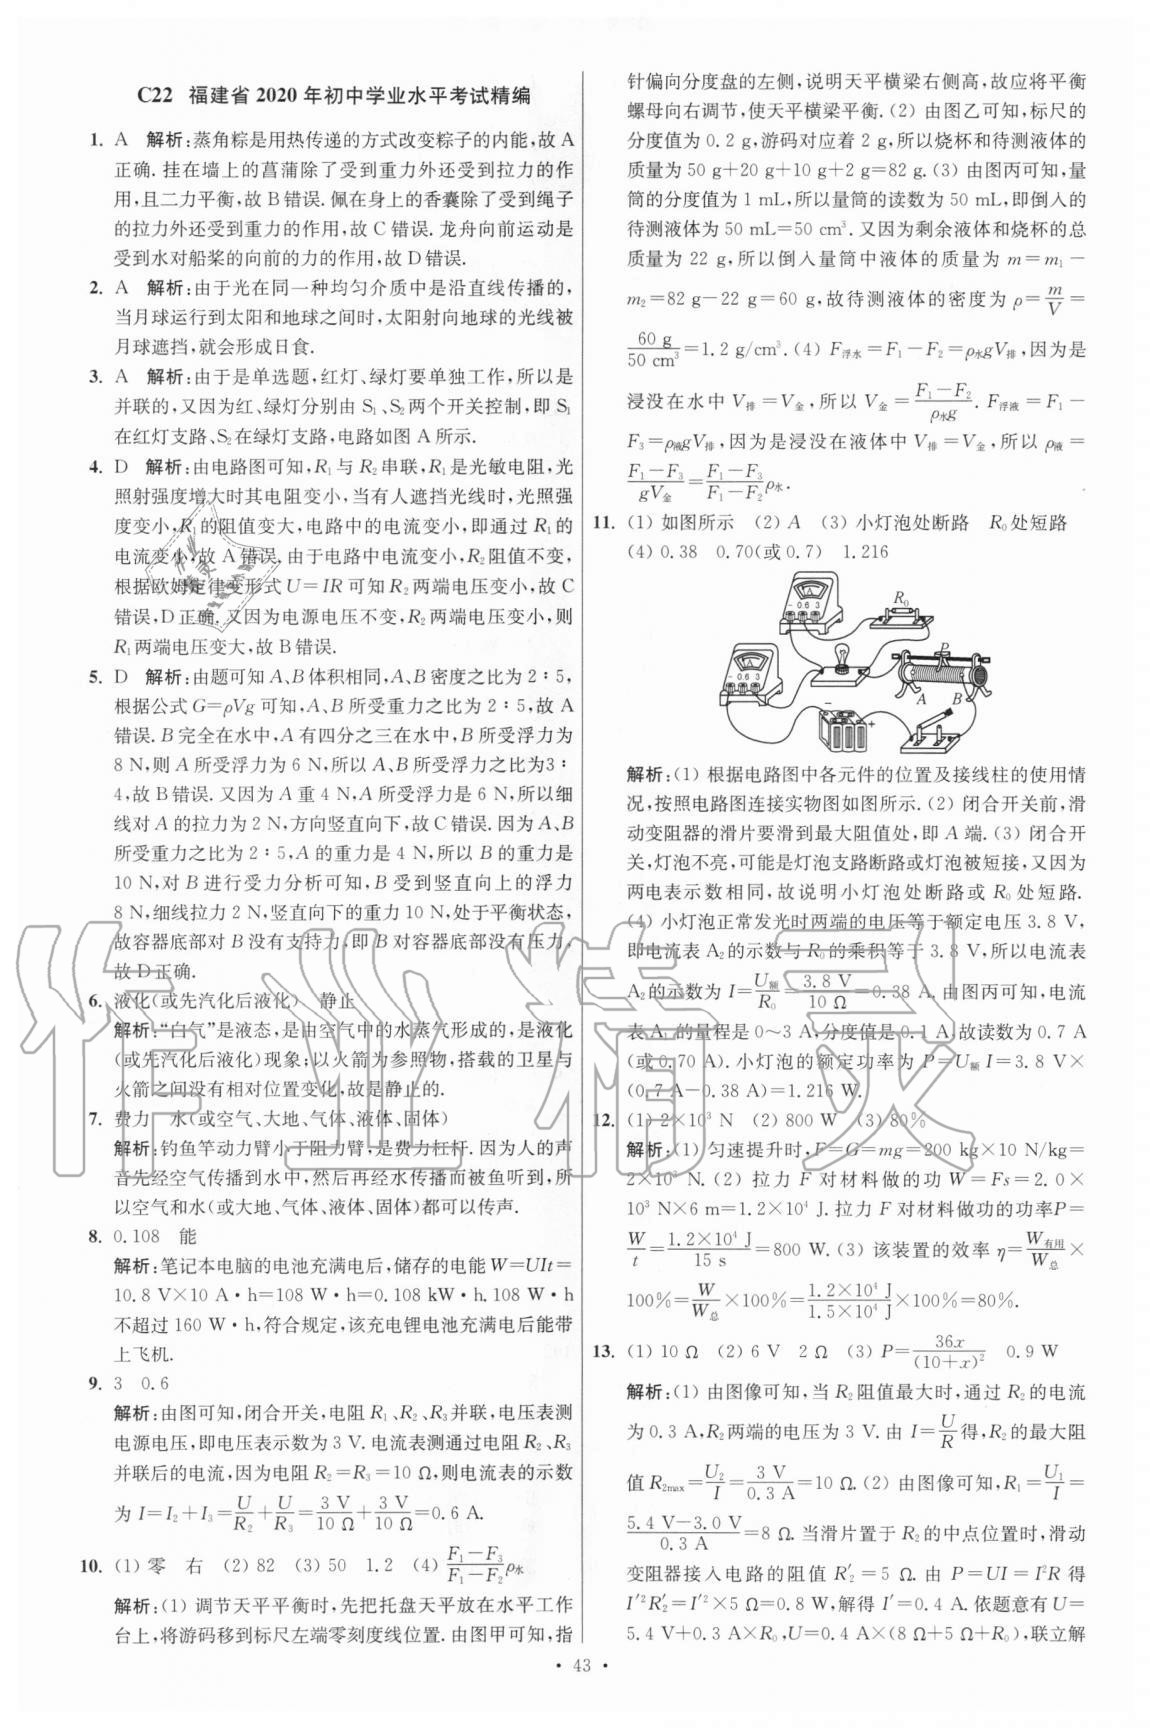 C22 福建省 2020 年初中学业水平考试精编
1. A 解析:蒸角粽是用热传递的方式改变粽子的内能,故 A
正确. 挂在墙上的菖蒲除了受到重力外还受到拉力的作
用,且二力平衡,故 B 错误. 佩在身上的香囊除了受到绳子
的拉力外还受到重力的作用,故 C 错误. 龙舟向前运动是
受到水对船桨的向前的力的作用,故 D 错误.
2. A 解析:由于光在同一种均匀介质中是沿直线传播的,
当月球运行到太阳和地球之间时,太阳射向地球的光线被
月球遮挡,就会形成日食.
3. A 解析:由于是单选题,红灯、绿灯要单独工作,所以是
并联的,又因为红、绿灯分别由 S₁、S₂两个开关控制,即 S₁
在红灯支路、S₂在绿灯支路,电路如图 A 所示.
4. D 解析:由电路图可知,R₁与 R₂串联,R₁是光敏电阻,光
照射强度增大时其电阻变小,当有人遮挡光线时,光照强
度变小,R₁的阻值变大,电路中的电流变小,即通过 R₁的
电流变小,故 A 错误. 由于电路中电流变小,R₂阻值不变,
根据欧姆定律变形式 U=IR 可知 R₂两端电压变小,故 C
错误,D 正确. 又因为电源电压不变,R₂两端电压变小,则
R₁两端电压变大,故 B 错误.
5. D 解析:由题可知 A、B 体积相同,A、B 密度之比为 2∶5,
根据公式 G=ρVg 可知,A、B 所受重力之比为 2∶5,故 A
错误. B 完全在水中,A 有四分之三在水中,B 所受浮力为
8 N,则 A 所受浮力为 6 N,所以 A、B 所受浮力之比为3∶
4,故 B 错误. 又因为 A 重 4 N,A 所受浮力是 6 N,所以细
线对 A 的拉力为 2 N,方向竖直向下,故 C 错误. 因为 A、B
所受重力之比为 2∶5,A 的重力是 4 N,所以 B 的重力是
10 N,对 B 进行受力分析可知,B 受到竖直向上的浮力
8 N,细线拉力 2 N,竖直向下的重力 10 N,处于平衡状态,
故容器底部对 B 没有支持力,即 B 对容器底部没有压力,
故 D 正确.
6. 液化(或先汽化后液化) 静止
解析:“白气”是液态,是由空气中的水蒸气形成的,是液化
(或先汽化后液化)现象;以火箭为参照物,搭载的卫星与
火箭之间没有相对位置变化,故是静止的.
7. 费力 水(或空气、大地、气体、液体、固体)
解析:钓鱼竿动力臂小于阻力臂,是费力杠杆. 因为人的声
音先经空气传播到水中,然后再经水传播而被鱼听到,所
以空气和水(或大地、气体、液体、固体)都可以传声.
8. 0.108 能
解析:笔记本电脑的电池充满电后,储存的电能 W=UIt=
10.8 V×10 A·h=108 W·h=0.108 kW·h. 108 W·h
不超过 160 W·h,符合规定,该充电锂电池充满电后能带
上飞机.
9. 3 0.6
解析:由图可知,闭合开关,电阻 R₁、R₂、R₃并联,电压表测
电源电压,即电压表示数为 3 V. 电流表测通过电阻 R₂、R₃
并联后的电流,因为电阻 R₂=R₃=10 Ω,则电流表的示数
为 I=I₂+I₃=U/R₂+U/R₃=3 V/10 Ω+3 V/10 Ω=0.6 A.
10. (1) 零 右 (2) 82 (3) 50 1.2 (4) (F₁−F₃)/(F₁−F₂)ρ水
解析:(1) 调节天平平衡时,先把托盘天平放在水平工作
台上,将游码移到标尺左端零刻度线位置. 由图甲可知,指
针偏向分度盘的左侧,说明天平横梁右侧高,故应将平衡
螺母向右调节,使天平横梁平衡. (2) 由图乙可知,标尺的
分度值为 0.2 g,游码对应着 2 g,所以烧杯和待测液体的
质量为 50 g+20 g+10 g+2 g=82 g. (3) 由图丙可知,量
筒的分度值为 1 mL,所以量筒的读数为 50 mL,即倒入的
待测液体为 50 mL=50 cm³. 又因为剩余液体和烧杯的总
质量为 22 g,所以倒入量筒中液体的质量为 m=m₁−
m₂=82 g−22 g=60 g,故待测液体的密度为 ρ=m/V=
60 g/50 cm³=1.2 g/cm³. (4) F浮水=F₁−F₂=ρ水gV排,因为是
浸没在水中 V排=V金,所以 V金=(F₁−F₂)/ρ水g. F浮液=F₁−
F₃=ρ液gV排,因为是浸没在液体中 V排=V金,所以 ρ液=
(F₁−F₃)/gV金=(F₁−F₃)/(F₁−F₂)ρ水.
11. (1) 如图所示 (2) A (3) 小灯泡处断路 R₀处短路
(4) 0.38 0.70(或 0.7) 1.216
A
− 0.6 3
R₀
A
− 0.6 3
P
A
B
−
+
解析:(1) 根据电路图中各元件的位置及接线柱的使用情
况,按照电路图连接实物图如图所示. (2) 闭合开关前,滑
动变阻器的滑片要滑到最大阻值处,即 A 端. (3) 闭合开
关,灯泡不亮,可能是灯泡支路断路或灯泡被短接,又因为
两电表示数相同,故说明小灯泡处断路或 R₀处短路.
(4) 小灯泡正常发光时两端的电压等于额定电压 3.8 V,
即电流表 A₂的示数与 R₀的乘积等于 3.8 V,所以电流表
A₂的示数为 I=U额/R₀=3.8 V/10 Ω=0.38 A. 由图丙可知,电流
表 A₁ 的量程是 0~3 A,分度值是 0.1 A,故读数为 0.7 A
(或 0.70 A). 小灯泡的额定功率为 P=U额 I=3.8 V×
(0.7 A−0.38 A)=1.216 W.
12. (1) 2×10³ N (2) 800 W (3) 80%
解析:(1) 匀速提升时,F=G=mg=200 kg×10 N/kg=
2×10³ N. (2) 拉力 F 对材料做的功 W=Fs=2.0×
10³ N×6 m=1.2×10⁴ J. 拉力 F 对材料做功的功率P=
W/t=1.2×10⁴ J/15 s=800 W. (3) 该装置的效率 η=W有用/W总×
100%=W/W总×100%=1.2×10⁴ J/1.5×10⁴ J×100%=80%.
13. (1) 10 Ω (2) 6 V 2 Ω (3) P=36x/(10+x)² 0.9 W
解析:(1) 由图像可知,当 R₂阻值最大时,通过 R₂的电流
为 0.3 A,R₂两端的电压为 3 V. 由 I=U/R得,R₂的最大阻
值 R₂max=U₂/I=3 V/0.3 A=10 Ω. (2) 由图像可知,R₁=U₁/I=
(5.4 V−3.0 V)/0.3 A=8 Ω. 当滑片置于 R₂的中点位置时,滑动
变阻器接入电路的阻值 R₂′=5 Ω. 由 P=UI=I²R 得
I′²R₂′=I′²×5 Ω=0.8 W,解得 I′=0.4 A. 依题意有 U=
5.4 V+0.3 A×R₀,U=0.4 A×(8 Ω+5 Ω+R₀),联立解
· 43 ·
作业精灵